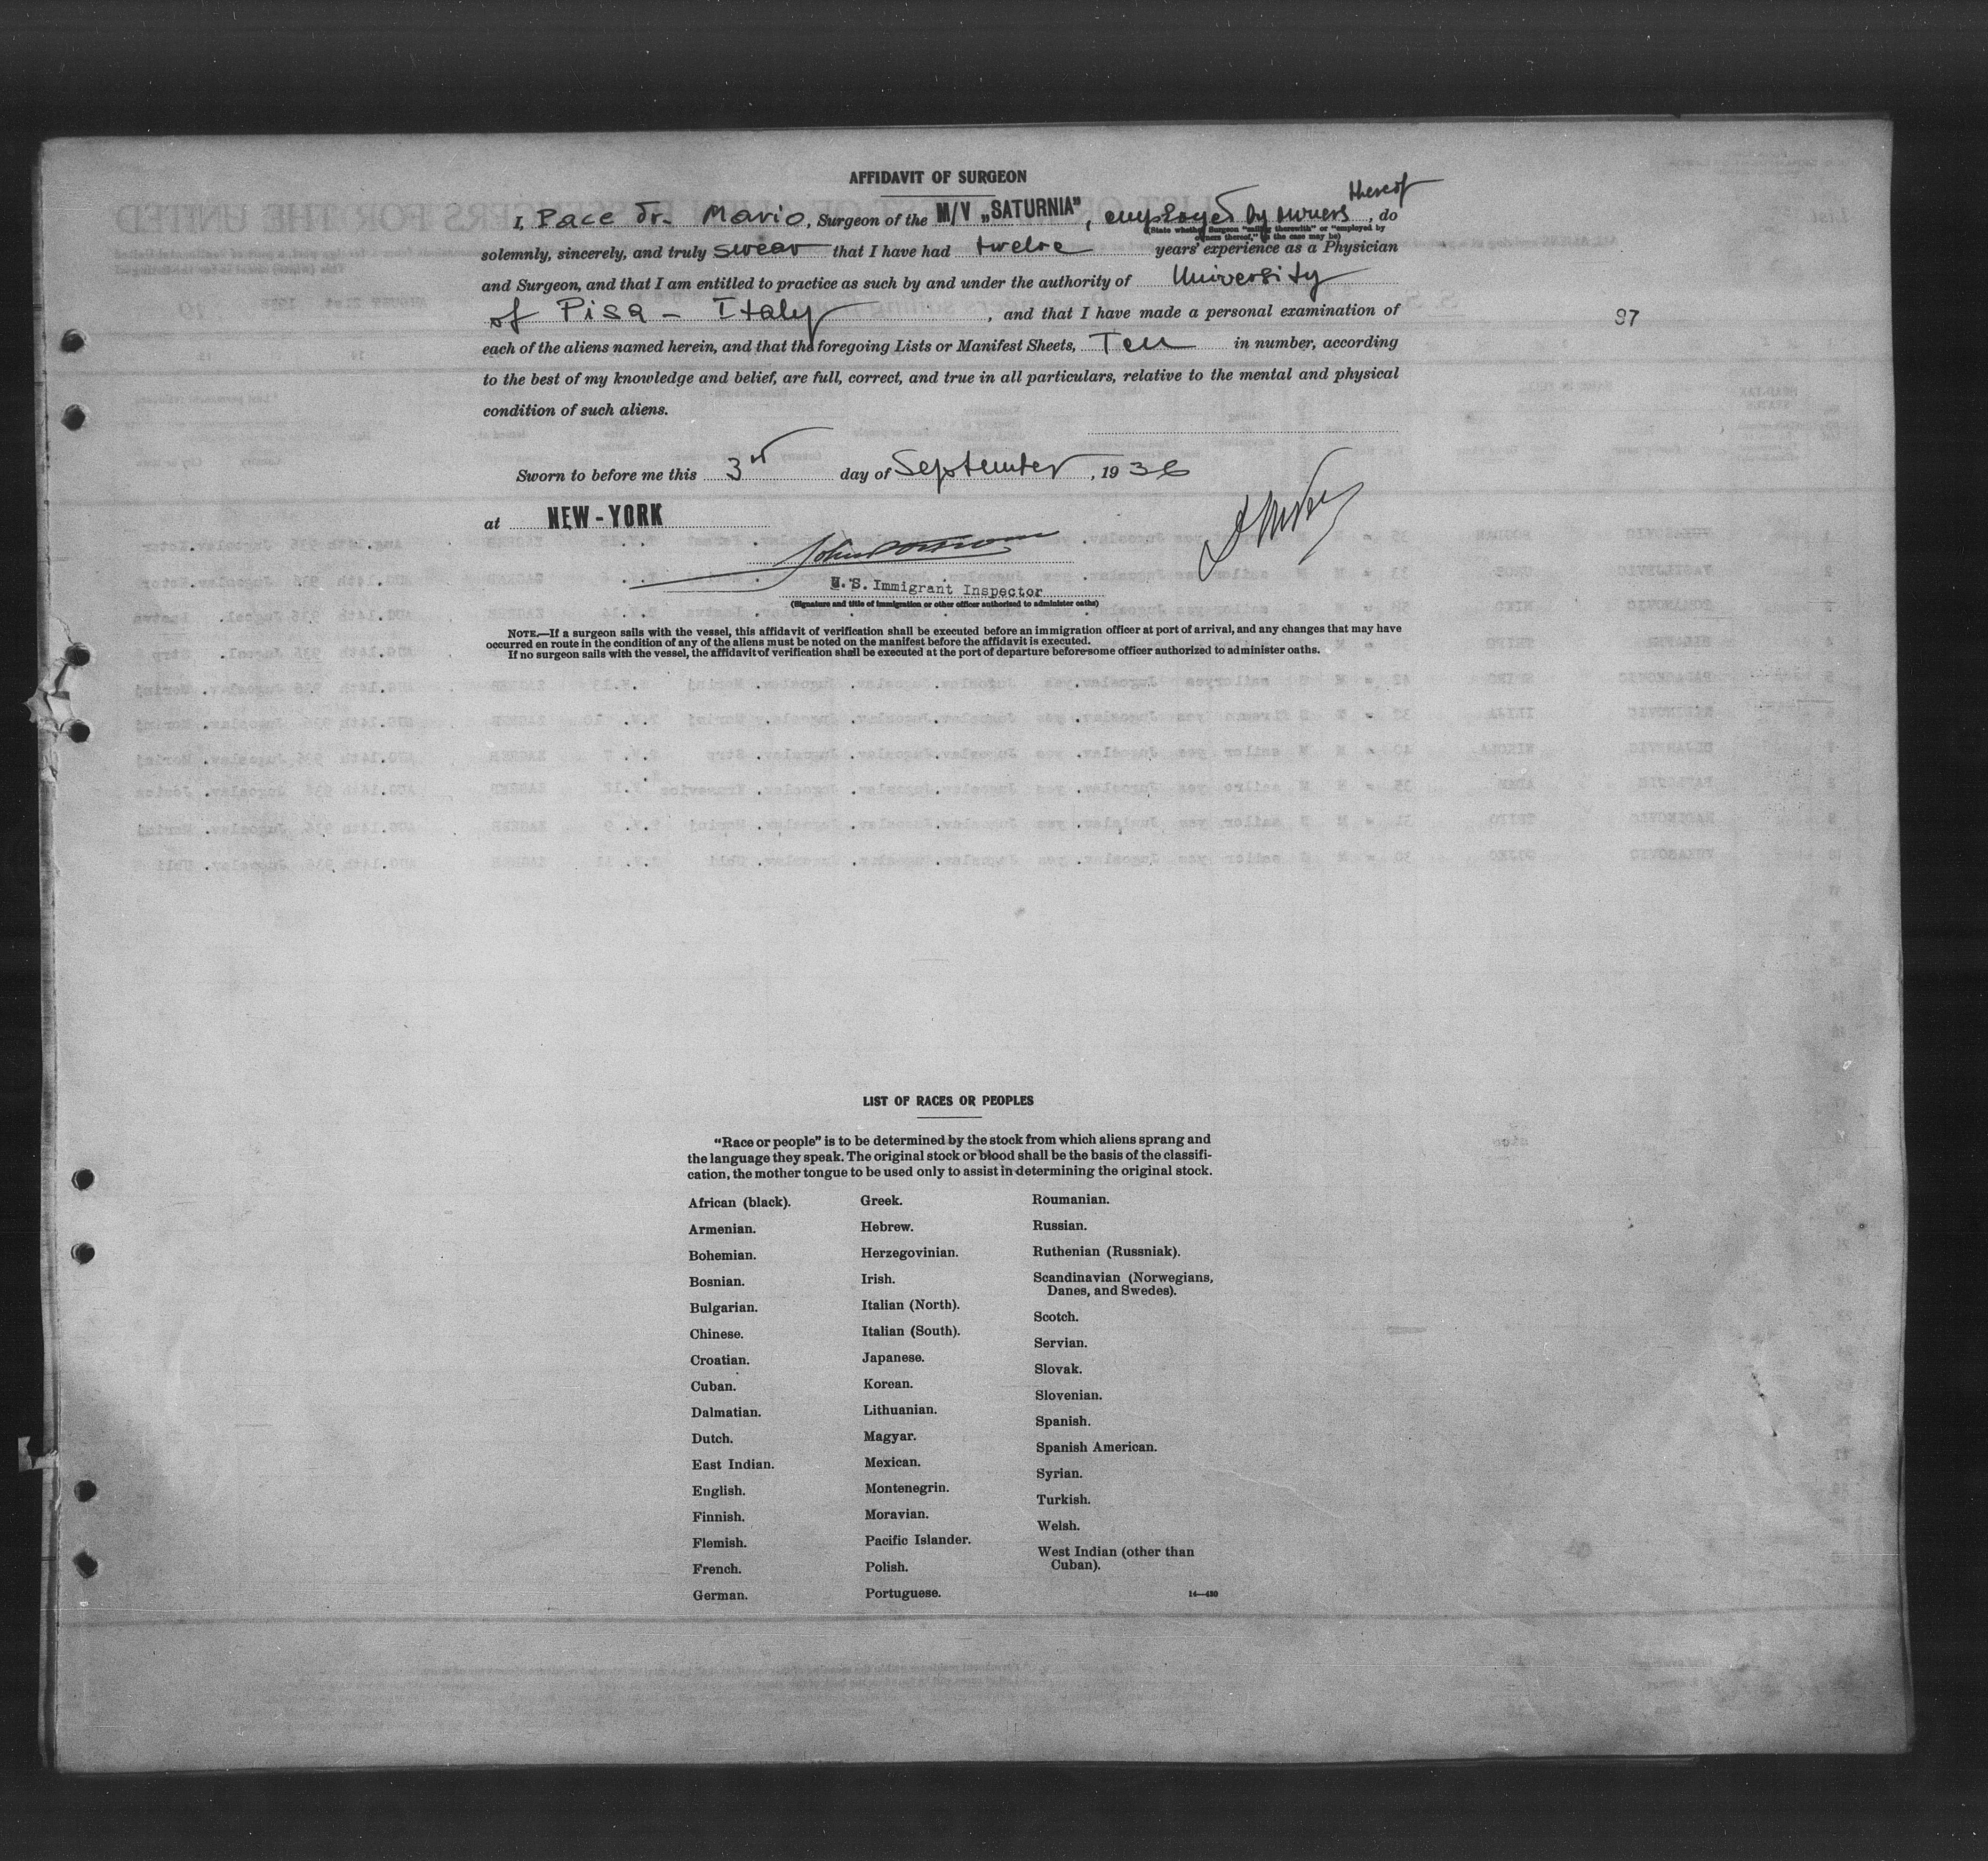 AFFIDAVIT OF SURGEON
thereof
I, Pace Dr. Mario, Surgeon of the M/V „SATURNIA", employed by owners, do
(State whether Surgeon "sailing therewith" or "employed by
owners thereof," as the case may be)
solemnly, sincerely, and truly swear that I have had twelve years' experience as a Physician
and Surgeon, and that I am entitled to practice as such by and under the authority of University
of Pisa - Italy, and that I have made a personal examination of
97
each of the aliens named herein, and that the foregoing Lists or Manifest Sheets, Ten in number, according
to the best of my knowledge and belief, are full, correct, and true in all particulars, relative to the mental and physical
condition of such aliens.
Sworn to before me this 3rd day of September, 1936
at NEW-YORK
U.S. Immigrant Inspector
(Signature and title of immigration or other officer authorized to administer oaths)
NOTE.—If a surgeon sails with the vessel, this affidavit of verification shall be executed before an immigration officer at port of arrival, and any changes that may have
occurred en route in the condition of any of the aliens must be noted on the manifest before the affidavit is executed.
If no surgeon sails with the vessel, the affidavit of verification shall be executed at the port of departure before some officer authorized to administer oaths.
LIST OF RACES OR PEOPLES
"Race or people" is to be determined by the stock from which aliens sprang and
the language they speak. The original stock or blood shall be the basis of the classifi-
cation, the mother tongue to be used only to assist in determining the original stock.
African (black).
Armenian.
Bohemian.
Bosnian.
Bulgarian.
Chinese.
Croatian.
Cuban.
Dalmatian.
Dutch.
East Indian.
English.
Finnish.
Flemish.
French.
German.
Greek.
Hebrew.
Herzegovinian.
Irish.
Italian (North).
Italian (South).
Japanese.
Korean.
Lithuanian.
Magyar.
Mexican.
Montenegrin.
Moravian.
Pacific Islander.
Polish.
Portuguese.
Roumanian.
Russian.
Ruthenian (Russniak).
Scandinavian (Norwegians,
Danes, and Swedes).
Scotch.
Servian.
Slovak.
Slovenian.
Spanish.
Spanish American.
Syrian.
Turkish.
Welsh.
West Indian (other than
Cuban).
14—480